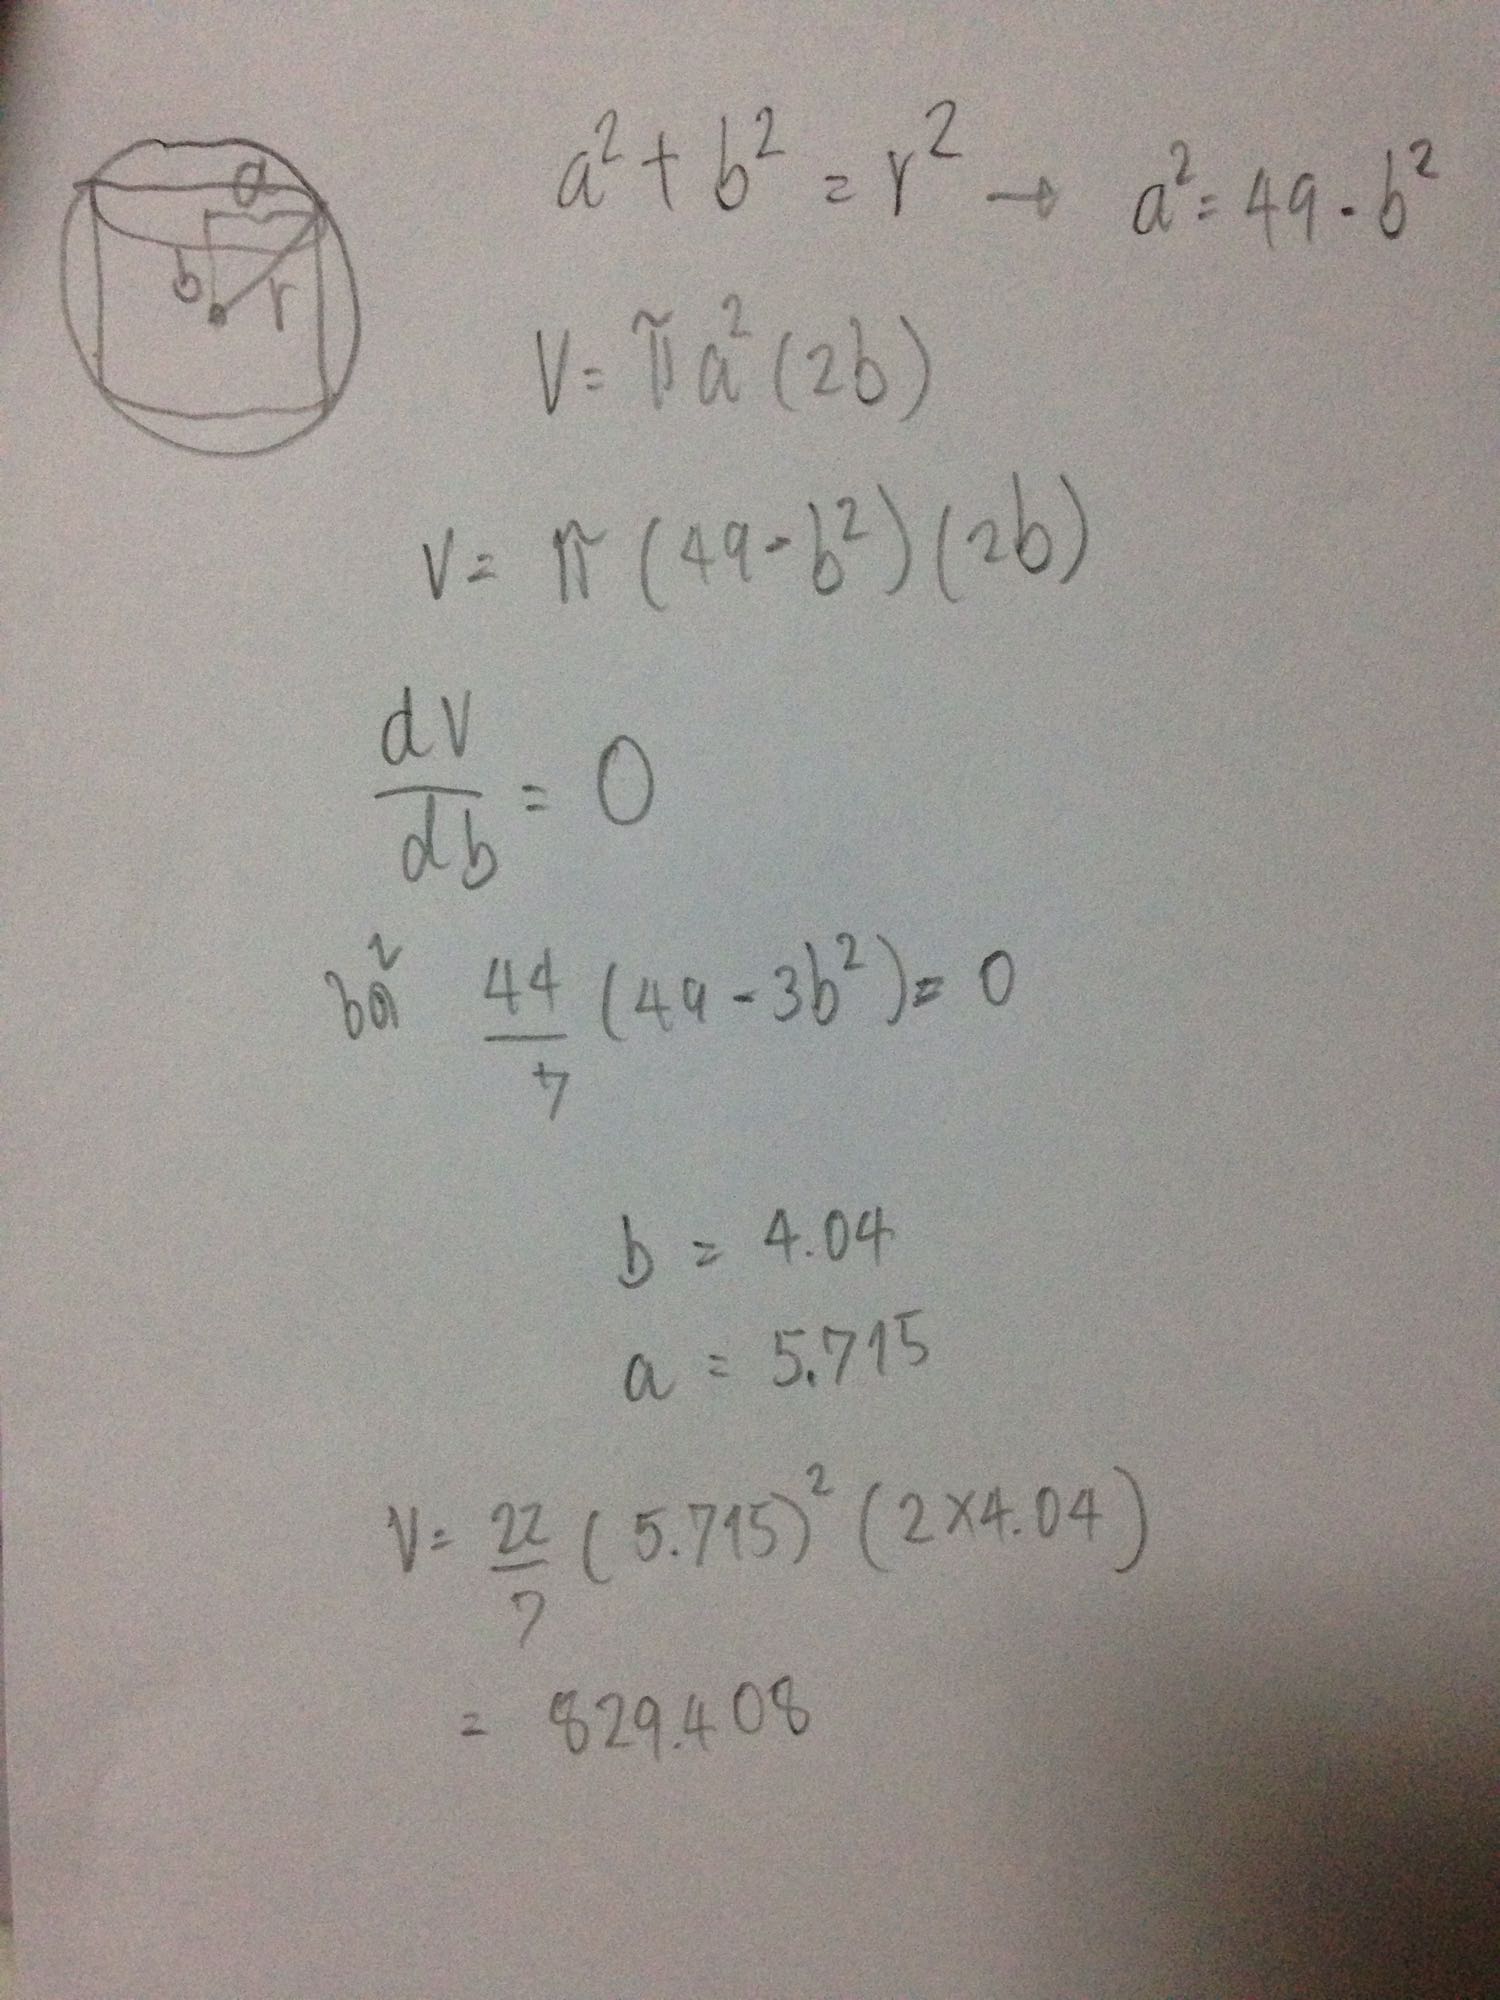 a
b
r
a² + b² = r² → a² = 49 - b²
V = πa²(2b)
V = π(49 - b²)(2b)
dV/db = 0
ได้ 44/7 (49 - 3b²) = 0
b = 4.04
a = 5.715
V = 22/7 (5.715)² (2×4.04)
= 829.408